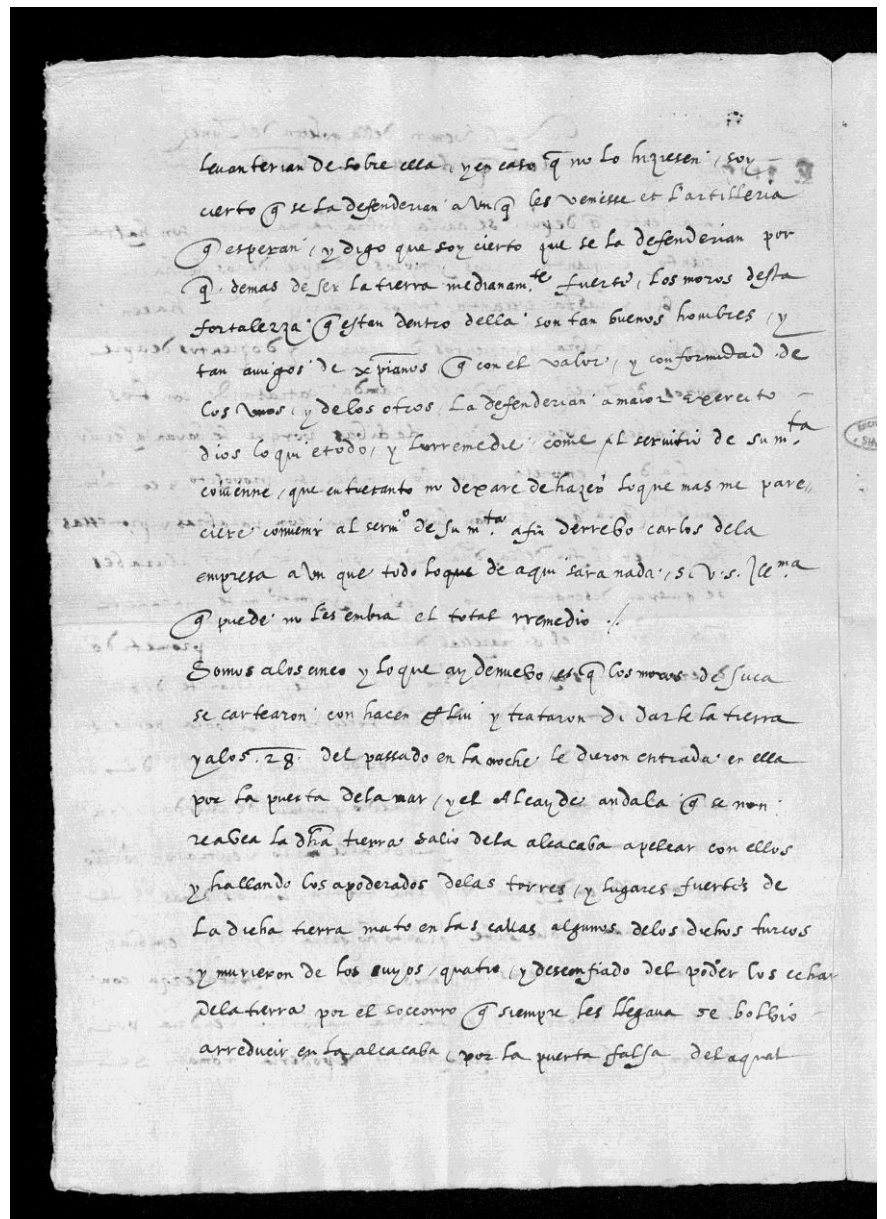 leuanterian de sobre ella, y en caso q̄ no lo hiziesen, soy
cierto q̄ se la defenderian a vn q̄ les veniesse et l'artilleria
q̄ esperan, y digo que soy cierto que se la defenderian por
q̄ demas de ser la tierra medianam.te fuerte, los moros desta
fortalezza q̄ estan dentro della son tan buenos hombres, y
tan amigos de xp̄ianos q̄ con el valor, y conformidad de
los vnos, y delos otros, la defenderian a maior exercito
dios lo qui etodo, y lo rremedie come al seruitio de su m.ta
conuenne, que entretanto no dexare de hazer loque mas me pare
ciere conuenir al serui.o de su m.ta afin derrebo carlos dela
empresa a vn que todo loque de aqui sara nada, si v. s. Ilema
q̄ puede no les enbia el total rremedio ./
Somos alos cinco y loque ay denuebo, es q̄ los moros de suca
se cartearon con hacen y trataron di darle la tierra
yalos .28. del passado en la noche le dieron entrada en ella
por la puerta dela mar, y el Alcayde andala q̄ se non
reabea la dh̄a tierra salio dela alcacaba apelear con ellos
y hallando los apoderados delas torres, y lugares fuertes de
La dicha tierra mato en las callas algunos delos dichos turcos
y murieron de los suyos, quatro, y desconfiado del poder los echar
dela tierra por el soccorro q̄ siempre les llegaua se boluio
arreducir en la alcacaba, por la puerta falsa del aqual